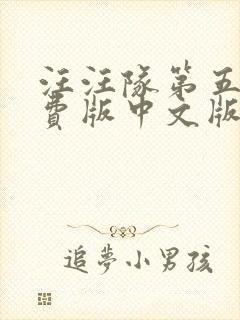 汪汪隊第五
費版中文版
追夢小男孩